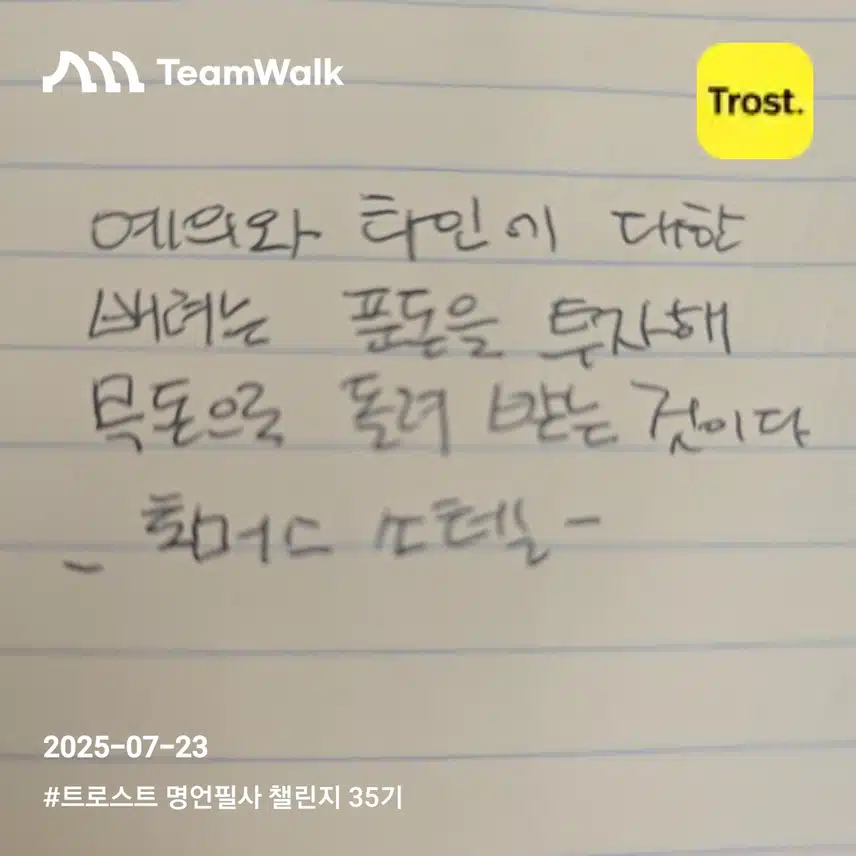 TeamWalk
Trost.
예의와 타인에 대한
배려는 푼돈을 투자해
목돈으로 돌려 받는 것이다
- 소웰 -
2025-07-23
#트로스트 명언필사 챌린지 35기